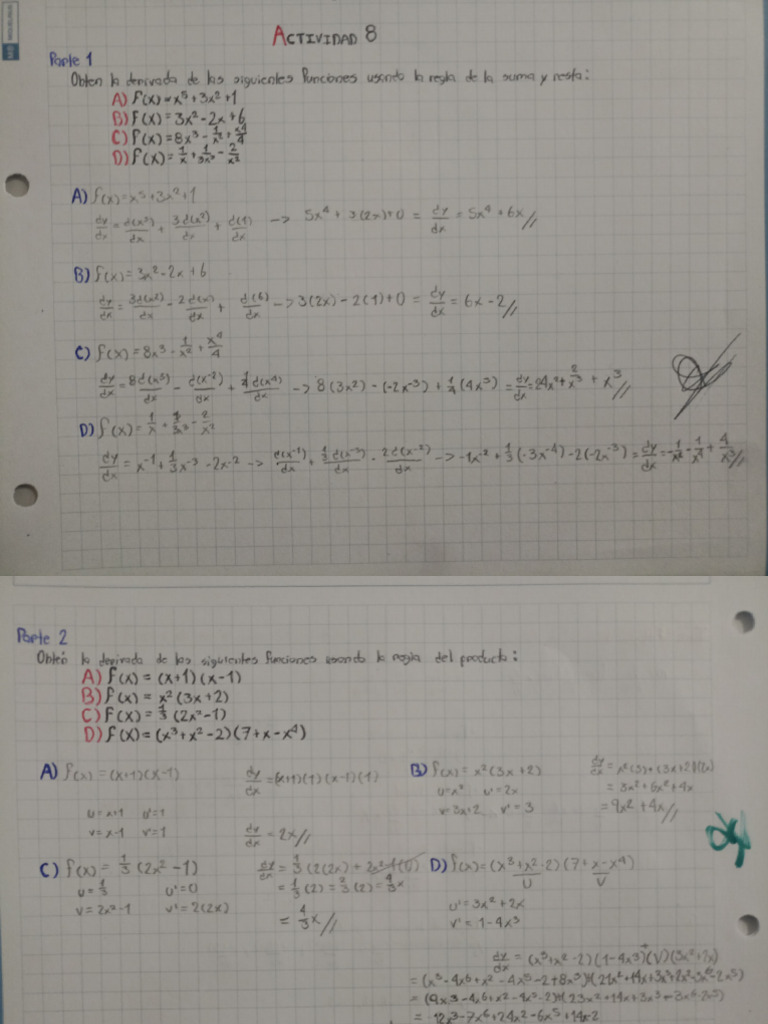 ACTIVIDAD 8
Parte 1
Obten la derivada de las siguientes funciones usando la regla de la suma y resta:
A) f(x)=x⁵+3x²+1
B) f(x)=3x²-2x+6
C) f(x)=8x³-1/x²+x⁴/4
D) f(x)=1/x+1/3x³-2/x²
A) f(x)=x⁵+3x²+1
dy/dx = d(x⁵)/dx + 3d(x²)/dx + d(1)/dx -> 5x⁴+3(2x)+0 = dy/dx = 5x⁴+6x//
B) f(x)=3x²-2x+6
dy/dx = 3d(x²)/dx - 2d(x)/dx + d(6)/dx -> 3(2x)-2(1)+0 = dy/dx = 6x-2//
C) f(x)=8x³-1/x²+x⁴/4
dy/dx = 8d(x³)/dx - d(x⁻²)/dx + 1/4 d(x⁴)/dx -> 8(3x²)-(-2x⁻³)+1/4(4x³) = dy/dx = 24x²+2/x³+x³//
D) f(x)=1/x+1/3x³-2/x²
dy/dx = x⁻¹+1/3x⁻³-2x⁻² -> d(x⁻¹)/dx + 1/3 d(x⁻³)/dx - 2d(x⁻²)/dx -> -1x⁻²+1/3(-3x⁻⁴)-2(-2x⁻³) = dy/dx = -1/x²-1/x⁴+4/x³//
Parte 2
Obten la derivada de las siguientes funciones usando la regla del producto:
A) f(x) = (x+1)(x-1)
B) f(x) = x²(3x+2)
C) f(x) = 1/3 (2x²-1)
D) f(x) = (x³+x²-2)(7+x-x⁴)
A) f(x)=(x+1)(x-1)
u=x+1 u'=1
v=x-1 v'=1
dy/dx = (x+1)(1)(x-1)(1)
dy/dx = 2x//
B) f(x)=x²(3x+2)
u=x² u'=2x
v=3x+2 v'=3
dy/dx = x²(3)+(3x+2)(2x)
= 3x²+6x²+4x
= 9x²+4x//
C) f(x)=1/3(2x²-1)
u=1/3 u'=0
v=2x²-1 v'=2(2x)
dy/dx = 1/3(2(2x)+2x²-1(0)
= 4/3x//
D) f(x)=(x³+x²-2)(7+x-x⁴)
U V
u'=3x²+2x
v'=1-4x³
dy/dx = (x³+x²-2)(1-4x³)+(V)(3x²+2x)